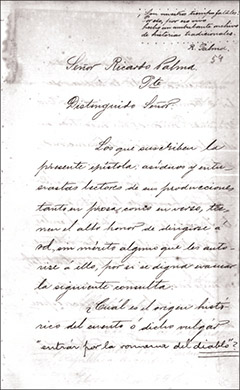 ¡Son nuestros tiempos fatales
R. Palma.
59
Señor Ricardo Palma
Pte
Distinguido Señor:
Los que suscriben la
presente epístola, asíduos y entu
siastas lectores de sus producciones
tanto en prosa, como en verso, tie-
nen el alto honor de dirigirse á
Ud, sin mérito alguno que les auto-
rise á ello, por si se digna evacuar
la siguiente consulta.
¿Cuál es el origen histó
rico del cuento ó dicho vulgar
"entrár por la romana del diablo"?